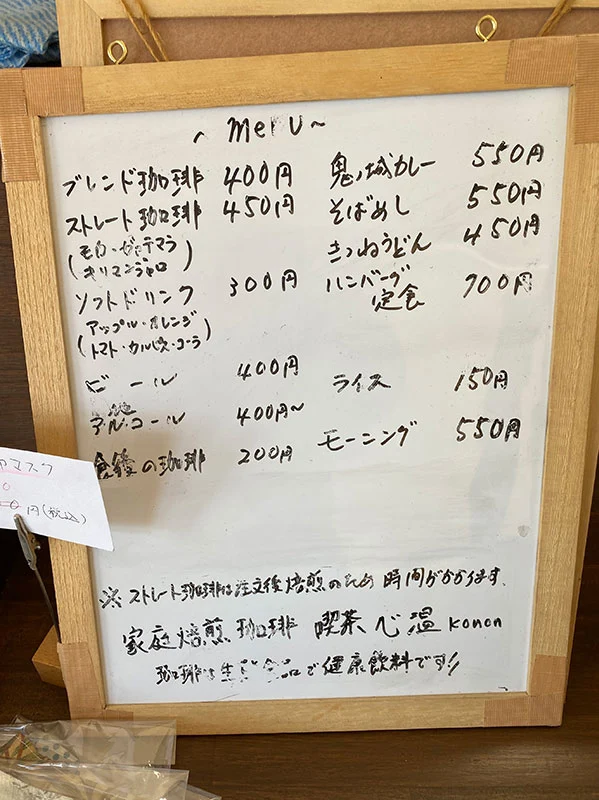 ~ MenU ~
ブレンド珈琲 400円
ストレート珈琲 450円
(モカ・ガテマラ
キリマンジャロ)
ソフトドリンク 300円
(アップル・オレンジ
トマト・カルピス・コーラ)
ビール 400円
他
アルコール 400円~
食後の珈琲 200円
鬼ノ城カレー 550円
そばめし 550円
きつねうどん 450円
ハンバーグ
定食 700円
ライス 150円
モーニング 550円
マスク
円(税込)
※ ストレート珈琲は注文後焙煎のため 時間がかかります.
家庭焙煎珈琲 喫茶 心温 konon
珈琲は生 食品で健康飲料です!!